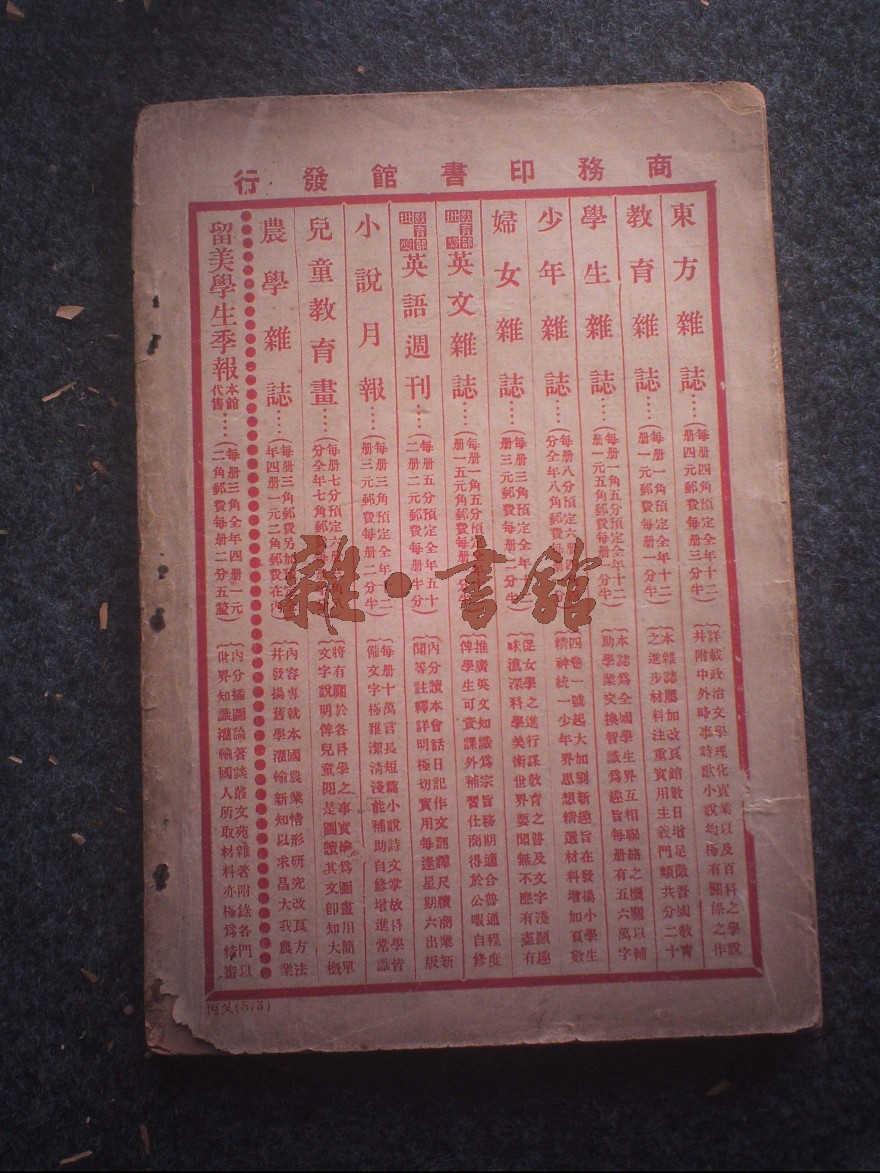 商務印書館發行
東方雜誌……
（每册四角預定全年十二
册四元郵費每册三分）
詳載政治文學理化實業以及百科之學說
并附中外時事詩歌小說均極有關係之作
教育雜誌……
（每册一角預定全年十二
册一元郵費每册一分半）
本雜誌屢加改良銷數日增足徵吾國教育
之進步材料注重實用主義門類共分二十
學生雜誌……
（每册一角五分預定全年十二
册一元五角郵費每册一分半）
本誌爲全國學生界互相聯絡之機關以補
助學業交換智識爲趣旨每册有五六萬字
少年雜誌……
（每册八分預定六册四
分全年八角郵費每册
四卷一號起大加刷新趣旨在發揚小學生
精神統一少年界思想精選材料增加頁數
婦女雜誌……
（每册三角預定全年十二
册三元郵費每册二分半）
促女學之進行謀教育之普及文字淺顯趣
味濃深科學美術世界要聞無不應有盡有
教育部批
英文雜誌……
（每册一角五分預定
册一元五角郵費每册
推廣英文知識爲宗旨務期適合普通程度
俾學生可資課外補習仕商得於公暇自修
教育部批
英語週刊……
（每册五分預定全年五十
二册二元郵費每册半分）
內分讀本會話日記作文翻譯尺牘商業新
聞等註釋詳明極切實用每逢星期六出版
小說月報……
（每册三角預定全年十二
册三元郵費每册二分半）
每册十萬言長短篇小說詩文掌故科學皆
備文字極雅潔清淺能補助自修增進常識
兒童教育畫……
（每册七分預定六册
分全年七角郵
將有關於各科學之事實繪爲圖畫用簡單
文字說明俾兒童閱是圖讀其文卽知大概
農學雜誌……
（每册三角郵費另加預定全
年四册一元二角郵費在內）
內容專就本國農業情形研究改良方法
并發揚舊學灌輸新知以求昌大我農業
留美學生季報
本館代售……
（每册三角全年四册一元
二角郵費每册二分五釐）
內分插圖論著談叢文苑雜著附錄各門以
世界知識灌輸國人所取材料亦極爲精審
雜·書館